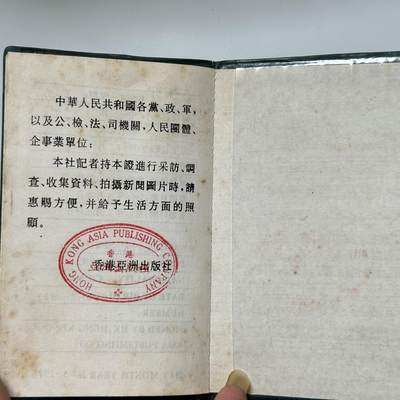 中華人民共和國各黨、政、軍,
以及公、檢、法、司機關,人民團體、
企事業單位:
本社記者持本證進行采訪、調
查、收集資料、拍攝新聞圖片時,請
惠賜方便,并給予生活方面的照
顧。
HONG KONG ASIA PUBLISHING COMPANY
香港
香港亞洲出版社